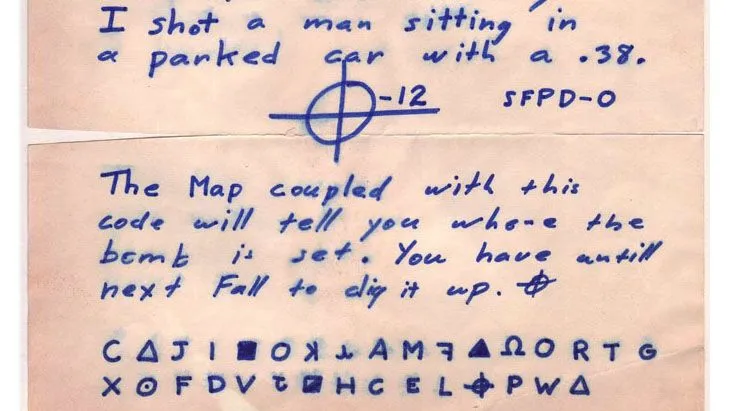 I shot a man sitting in
a parked car with a .38.
⌖-12 SFPD-0
The Map coupled with this
code will tell you where the
bomb is set. You have untill
next Fall to dig it up. ⌖
C Δ J I ■ O ꓘ ⅄ A M ꟻ ▲ Ω O R T G
X ⊙ F D V Ƨ ◪ H C E L ⌖ P W Δ